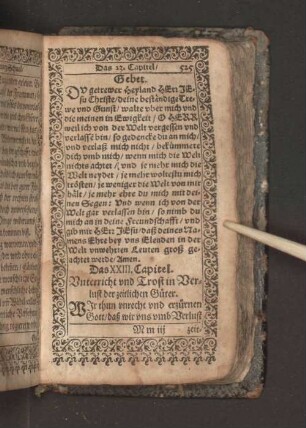 Das 22. Capitel/ 525
Gebet.
DV getrewer Heyland HErr JE-
su Christe/deine beständige Tre-
we vnd Gunst/ walte vber mich vnd
die meinen in Ewigkeit/ O HERR
weil ich von der Welt vergessen vnd
verlassen bin/ so gedencke du an mich
vnd verlaß mich nicht/ bekümmere
dich vmb mich/ wenn mich die Welt
nichts achtet/ vnd je mehr mich die
Welt neydet/ je mehr wollestu mich
trösten/ je weniger die Welt von mir
hält/ je mehr ehre du mich mit dei-
nen Segen: Vnd wenn ich von der
Welt gar verlassen bin/ so nimb du
mich an in deine Freundschafft/ vnd
gib mir HErr JEsu/ daß deines Na-
mens Ehre bey vns Elenden in der
Welt vnwehrten Leuten groß ge-
achtet werde/ Amen.
Das XXIII. Capitel.
Vnterricht vnd Trost in Ver-
lust der zeitlichen Güter.
WIr thun vnrecht vnd erzürnen
Gott/ daß wir vns vmb Verlust
M m iij zeit-